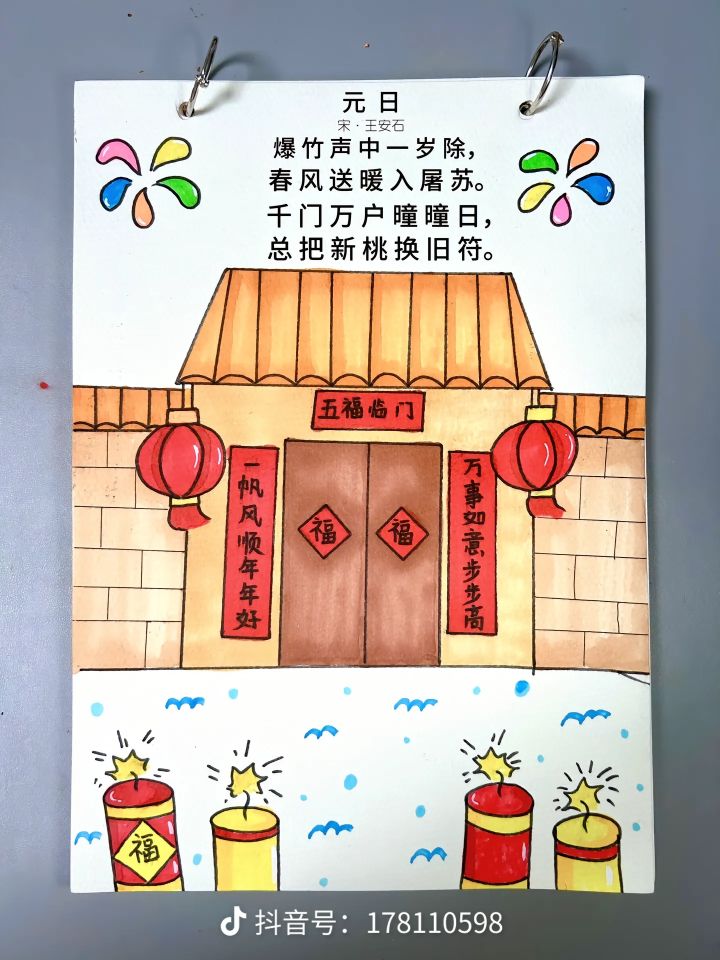 元日
宋·王安石
爆竹声中一岁除，
春风送暖入屠苏。
千门万户曈曈日，
总把新桃换旧符。
五福临门
一帆风顺年年好
万事如意步步高
福
福
福
抖音号：178110598